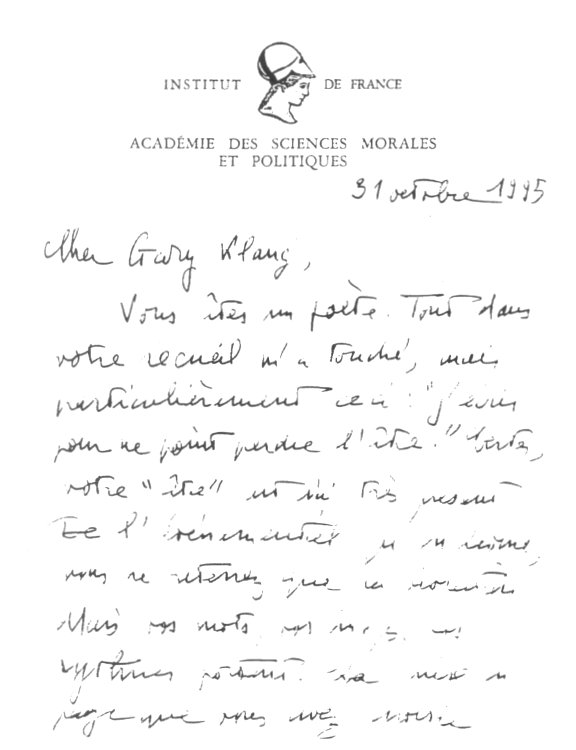 INSTITUT DE FRANCE
ACADÉMIE DES SCIENCES MORALES
ET POLITIQUES
31 octobre 1995
Cher Gary Klang,
Vous êtes un poète. Tout dans
votre recueil m'a touché, mais
particulièrement ceci : "J'écris
pour ne point perdre l'être." Certes,
votre "être" est ici très présent
De l'événementiel
vous ne retenez que la
Mais vos mots, vos
rythmes
page que vous avez